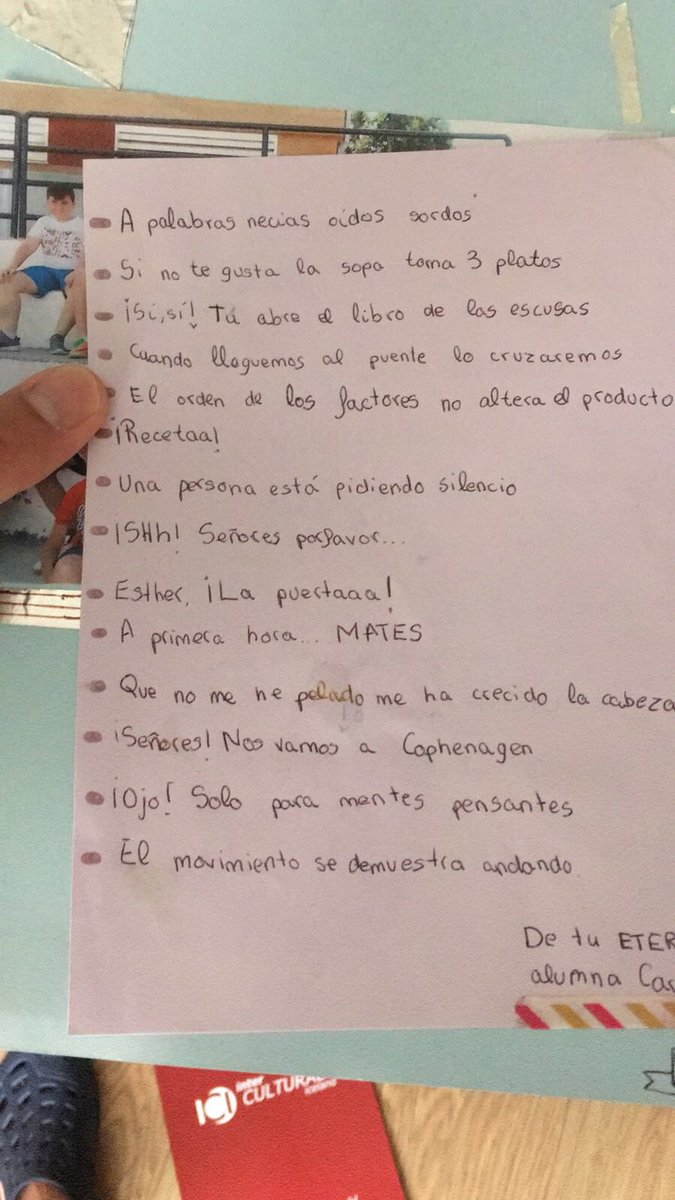 A palabras necias oídos sordos
Si no te gusta la sopa toma 3 platos
¡Sí, sí! Tú abre el libro de las escusas
Cuando lleguemos al puente lo cruzaremos
El orden de los factores no altera el producto
¡Recetaa!
Una persona está pidiendo silencio
¡SHh! Señores porfavor...
Esther, ¡La puertaaa!
A primera hora... MATES
Que no me he pelado me ha crecido la cabeza
¡Señores! Nos vamos a Cophenagen
¡Ojo! Solo para mentes pensantes
El movimiento se demuestra andando
De tu ETER
alumna Car
inter
CULTURA